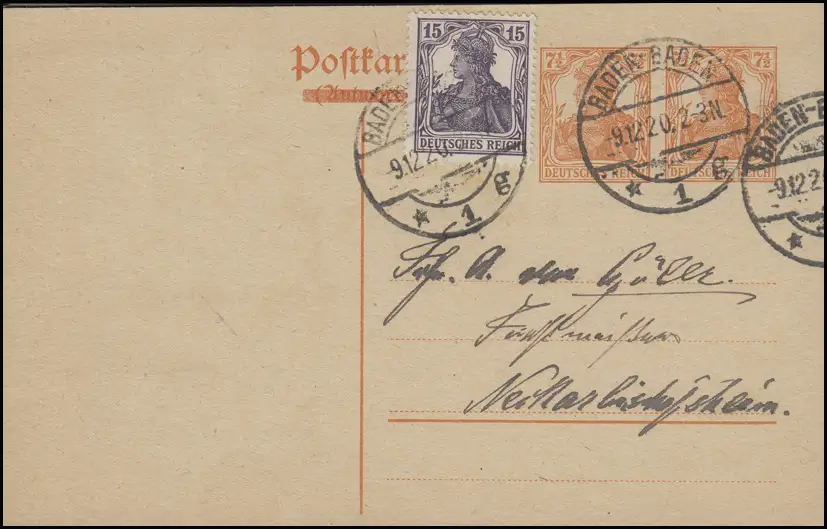 Postkar
(Antwort
15 15
DEUTSCHES REICH
7½ 7½
DEUTSCHES REICH DEUTSCHES REICH
BADEN-BADEN
-9.12.20. 2-3N.
* 1 g
BADEN
-9.12.20.
* 1 g
BADEN-B
-9.12.2
*
Frhr. A. von Göler.
Forstmeister
Neckarbischofsheim.